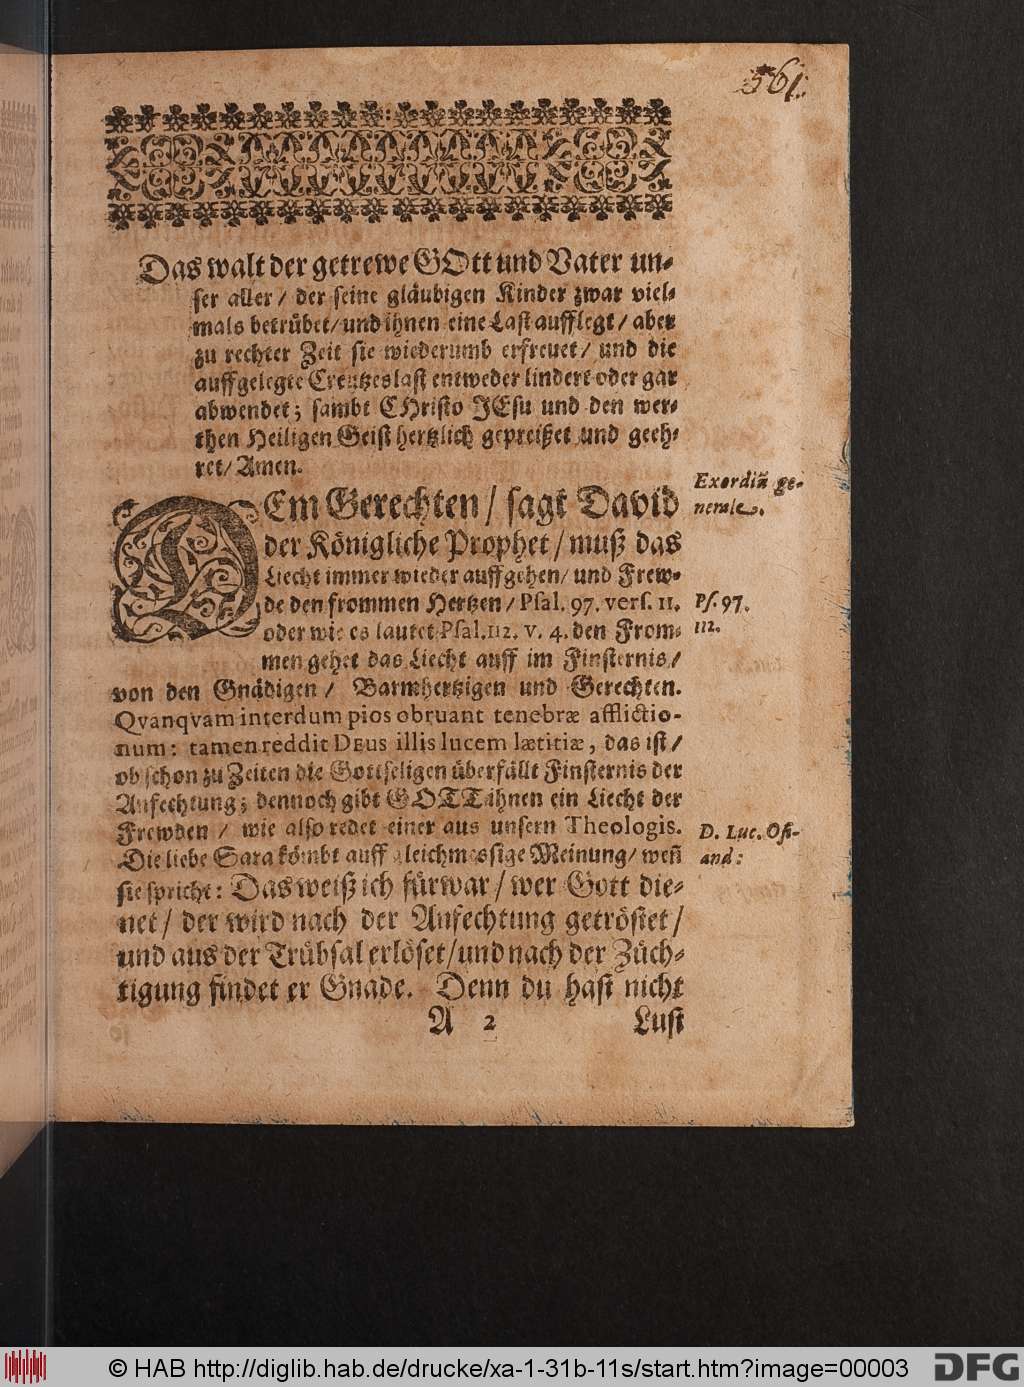 561.
Das walt der getrewe GOtt und Vater un-
ser aller / der seine gläubigen Kinder zwar viel-
mals betrübet / und ihnen eine Last aufflegt / aber
zu rechter Zeit sie wiederumb erfreuet / und die
auffgelegte Creutzeslast entweder lindert oder gar
abwendet; sambt CHristo JEsu und den wer-
then Heiligen Geist hertzlich gepreißet und geeh-
ret / Amen.
DEm Gerechten / sagt David
Exordiũ ge-
nerale.
der Königliche Prophet / muß das
Liecht immer wieder auffgehen / und Frew-
de den frommen Hertzen / Psal. 97. vers. 11.
Ps. 97.
oder wie es lautet Psal. 112. v. 4. den From-
112.
men gehet das Liecht auff im Finsternis /
von den Gnädigen / Barmhertzigen und Gerechten.
Qvanqvam interdum pios obruant tenebræ afflictio-
num: tamen reddit DEus illis lucem lætitiæ, das ist /
ob schon zu Zeiten die Gottseligen überfällt Finsternis der
Anfechtung; dennoch gibt GOTT ihnen ein Liecht der
Frewden / wie also redet einer aus unsern Theologis.
D. Luc. Osi-
and:
Die liebe Sara kömbt auff gleichmessige Meinung / weñ
sie spricht: Das weiß ich fürwar / wer Gott die-
net / der wird nach der Anfechtung getröstet /
und aus der Trübsal erlöset / und nach der Züch-
tigung findet er Gnade. Denn du hast nicht
A 2 Lust
© HAB http://diglib.hab.de/drucke/xa-1-31b-11s/start.htm?image=00003
DFG